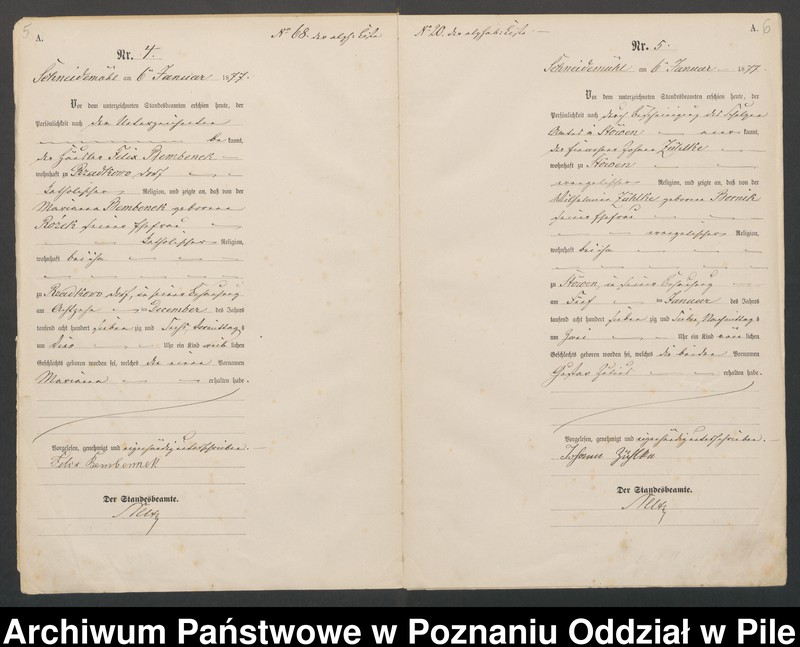 5
A.
No 68. der alph. Liste
Nr. 4.
Schneidemühl am 6 Januar 1877.
Vor dem unterzeichneten Standesbeamten erschien heute, der
Persönlichkeit nach
bekannt,
der Händler Felix Rembenek
wohnhaft zu Rzadkowo Dorf
katholischer Religion, und zeigte an, daß von der
Marianna Rembenek geborene
Rożek seiner Ehefrau
katholischer Religion,
wohnhaft bei ihm
zu Rzadkowo Dorf, in seiner Behausung
am December des Jahres
tausend acht hundert siebenzig und sechs Vormittags
um Uhr ein Kind weiblichen
Geschlechts geboren worden sei, welches den einen Vornamen
Marianna erhalten habe.
Vorgelesen, genehmigt und eigenhändig unterschrieben.
Felix Rembennek
Der Standesbeamte.
No 20. der alphab. Liste
A. 6
Nr. 5.
Schneidemühl am 6 Januar 1877.
Vor dem unterzeichneten Standesbeamten erschien heute, der
Persönlichkeit nach durch Bescheinigung des Schulzen
Amtes in Stöwen anerkannt,
der Einwohner Johann Zühlke
wohnhaft zu Stöwen
evangelischer Religion, und zeigte an, daß von der
Wilhelmine Zühlke geborene Bernik
seiner Ehefrau
evangelischer Religion,
wohnhaft bei ihm
zu Stöwen, in seiner Behausung
am Fünf ten Januar des Jahres
tausend acht hundert siebenzig und sieben, Nachmittags
um Zwei Uhr ein Kind männlichen
Geschlechts geboren worden sei, welches die beiden Vornamen
Gustav Julius erhalten habe.
Vorgelesen, genehmigt und eigenhändig unterschrieben.
Johann Zühlke
Der Standesbeamte.
Archiwum Państwowe w Poznaniu Oddział w Pile